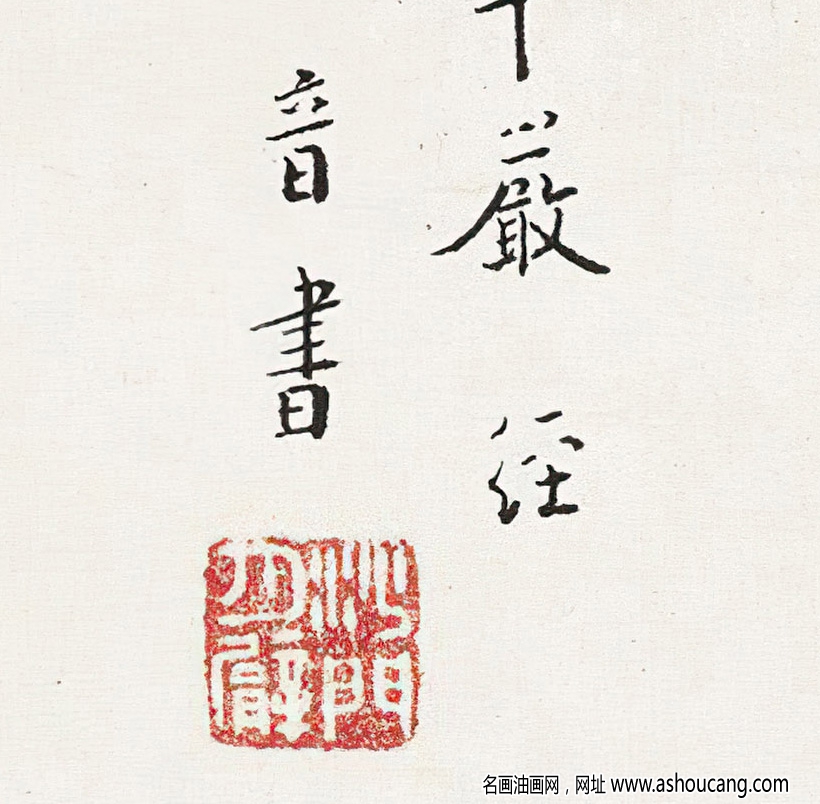 嚴經
音書
沙門月臂
名画油画网，网址 www.ashoucang.com